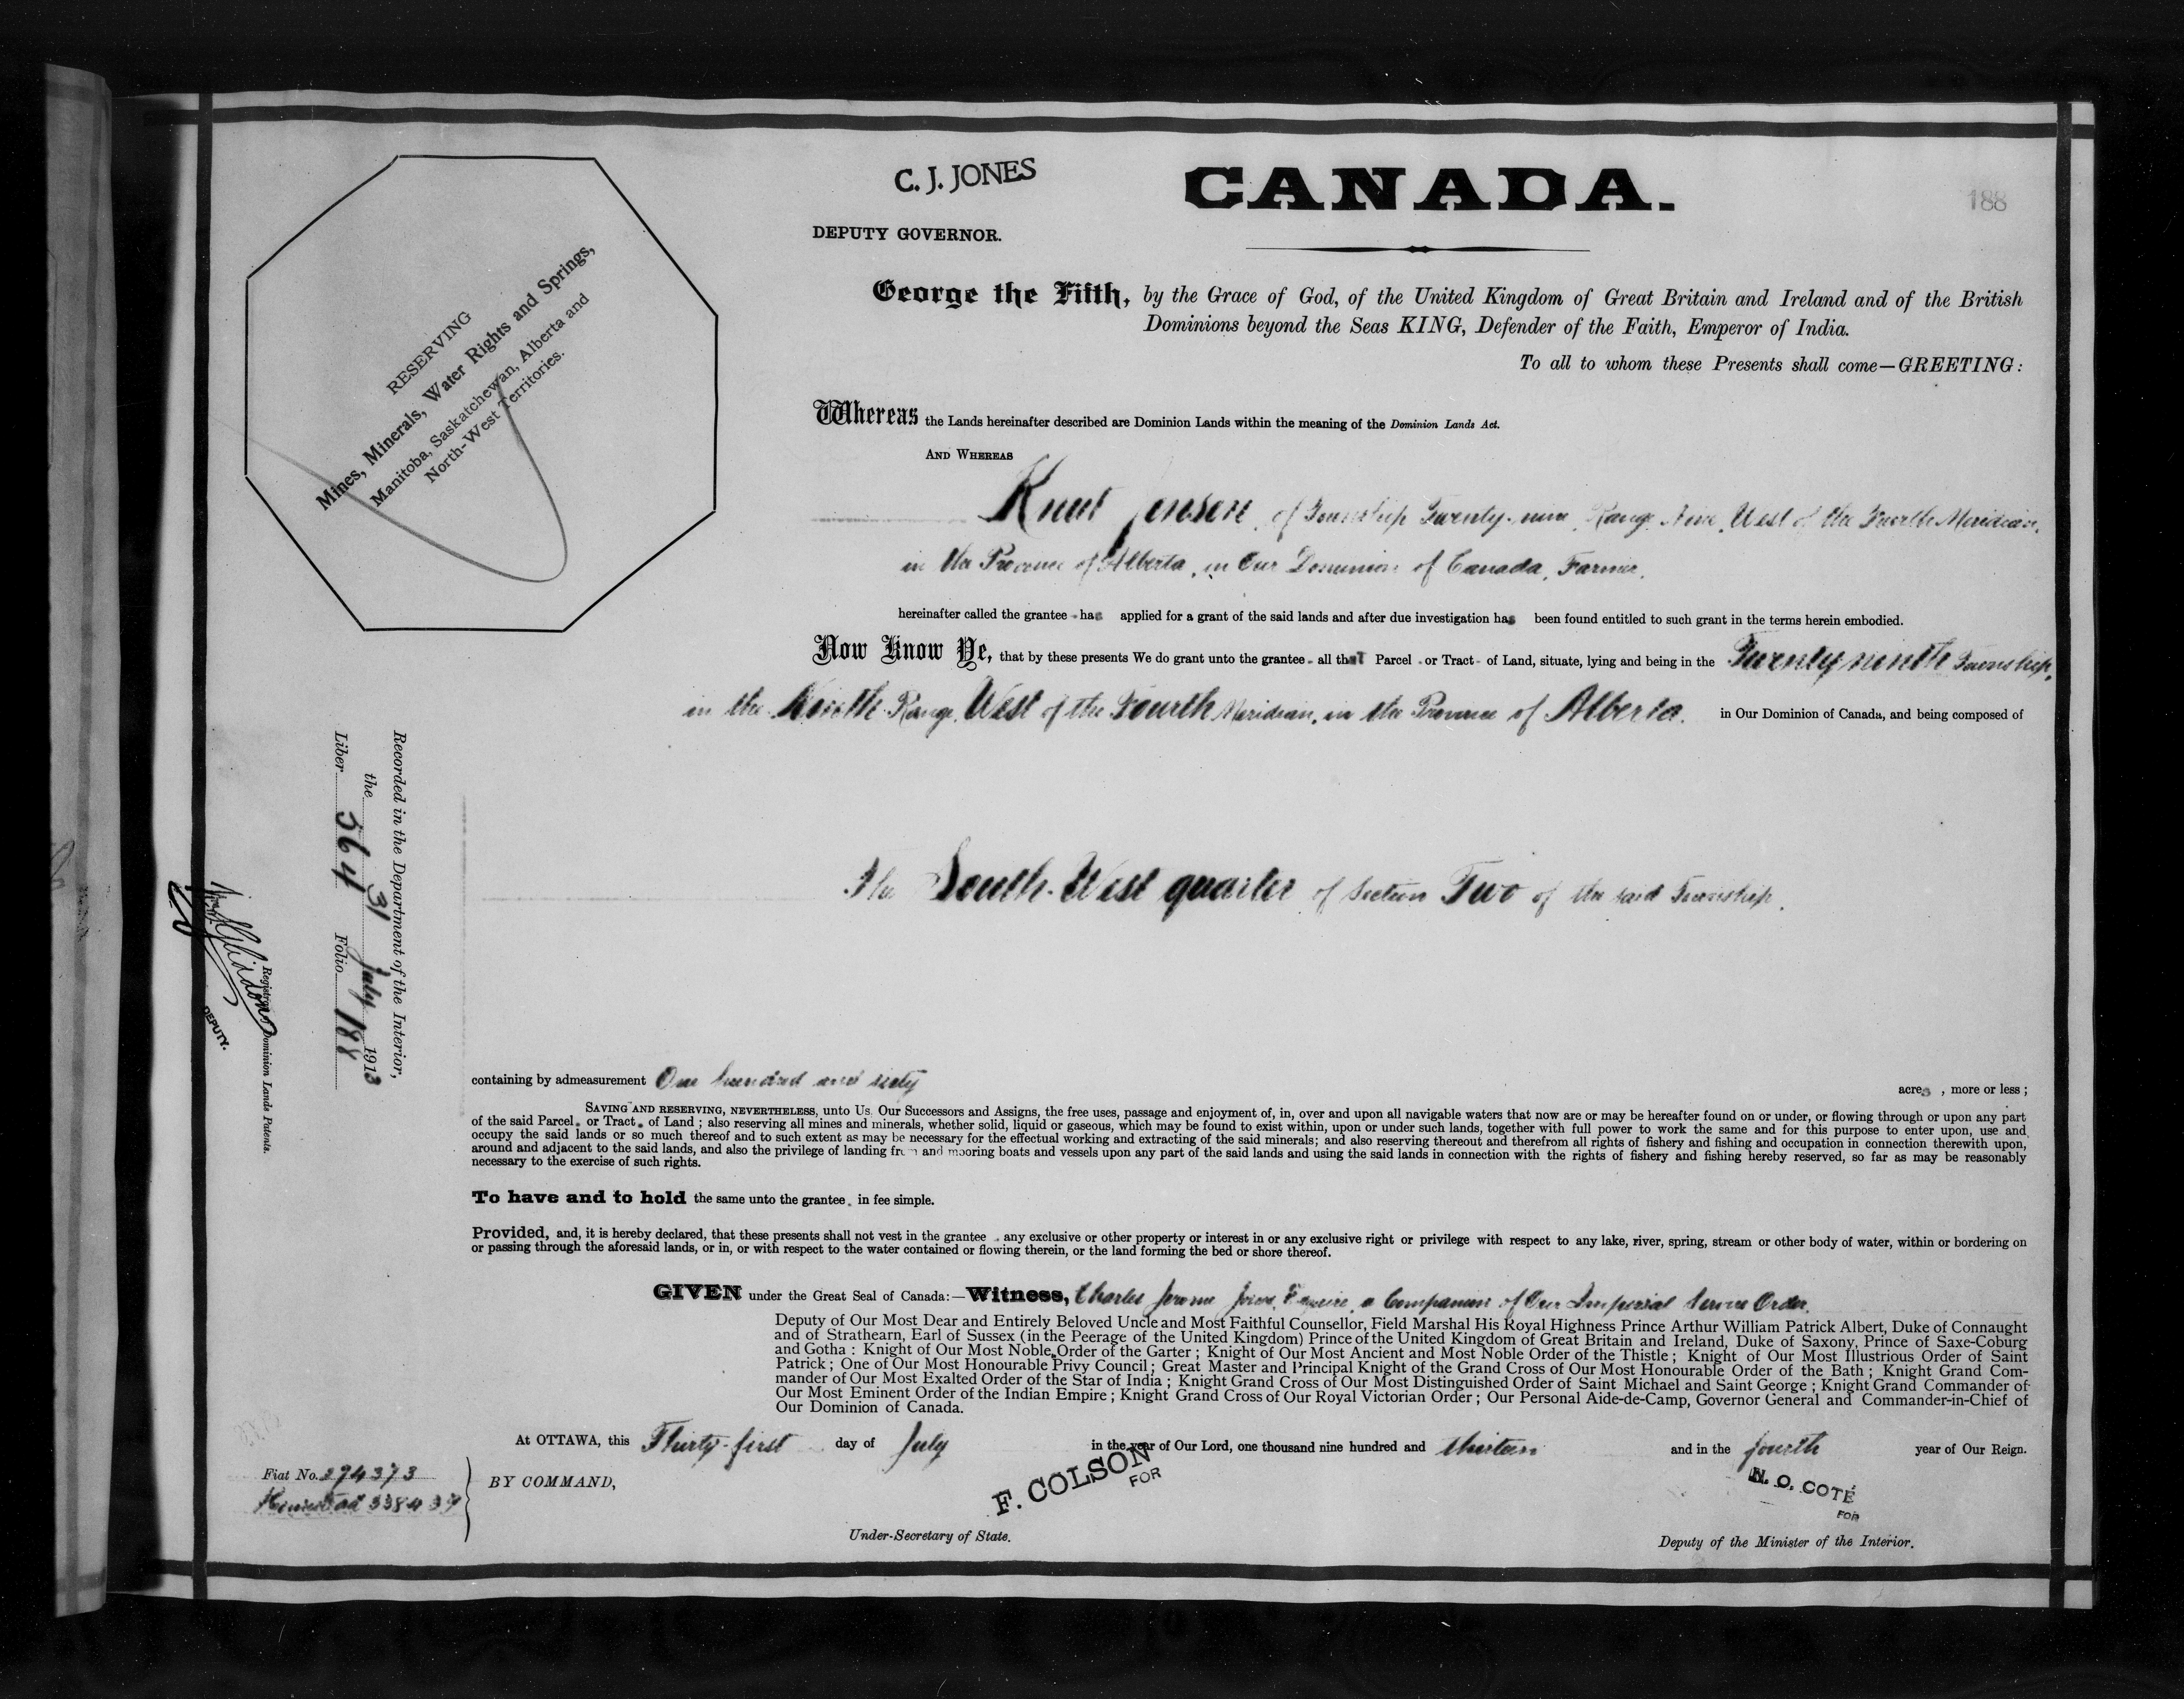 C. J. JONES
CANADA.
188
DEPUTY GOVERNOR.
George the Fifth, by the Grace of God, of the United Kingdom of Great Britain and Ireland and of the British
Dominions beyond the Seas KING, Defender of the Faith, Emperor of India.
To all to whom these Presents shall come—GREETING:
RESERVING
Mines, Minerals, Water Rights and Springs,
Manitoba, Saskatchewan, Alberta and
North-West Territories.
Whereas the Lands hereinafter described are Dominion Lands within the meaning of the Dominion Lands Act.
AND WHEREAS
Knut Jensen, of Township Twenty-nine, Range Nine, West of the Fourth Meridian,
in the Province of Alberta, in Our Dominion of Canada, Farmer,
hereinafter called the grantee has applied for a grant of the said lands and after due investigation has been found entitled to such grant in the terms herein embodied.
Now Know Ye, that by these presents We do grant unto the grantee all that Parcel or Tract of Land, situate, lying and being in the Twenty ninth Township,
in the Ninth Range, West of the Fourth Meridian, in the Province of Alberta. in Our Dominion of Canada, and being composed of
The South-West quarter of Section Two of the said Township.
Recorded in the Department of the Interior,
the 31 July 1913
Liber 564 Folio 188
Registrar Dominion Lands Patents.
DEPUTY.
containing by admeasurement One hundred and sixty acres, more or less;
SAVING AND RESERVING, NEVERTHELESS, unto Us, Our Successors and Assigns, the free uses, passage and enjoyment of, in, over and upon all navigable waters that now are or may be hereafter found on or under, or flowing through or upon any part
of the said Parcel or Tract of Land; also reserving all mines and minerals, whether solid, liquid or gaseous, which may be found to exist within, upon or under such lands, together with full power to work the same and for this purpose to enter upon, use and
occupy the said lands or so much thereof and to such extent as may be necessary for the effectual working and extracting of the said minerals; and also reserving thereout and therefrom all rights of fishery and fishing and occupation in connection therewith upon,
around and adjacent to the said lands, and also the privilege of landing from and mooring boats and vessels upon any part of the said lands and using the said lands in connection with the rights of fishery and fishing hereby reserved, so far as may be reasonably
necessary to the exercise of such rights.
To have and to hold the same unto the grantee, in fee simple.
Provided, and, it is hereby declared, that these presents shall not vest in the grantee any exclusive or other property or interest in or any exclusive right or privilege with respect to any lake, river, spring, stream or other body of water, within or bordering on
or passing through the aforesaid lands, or in, or with respect to the water contained or flowing therein, or the land forming the bed or shore thereof.
GIVEN under the Great Seal of Canada:—Witness, Charles Jerome Jones, Esquire, a Companion of Our Imperial Service Order,
Deputy of Our Most Dear and Entirely Beloved Uncle and Most Faithful Counsellor, Field Marshal His Royal Highness Prince Arthur William Patrick Albert, Duke of Connaught
and of Strathearn, Earl of Sussex (in the Peerage of the United Kingdom) Prince of the United Kingdom of Great Britain and Ireland, Duke of Saxony, Prince of Saxe-Coburg
and Gotha: Knight of Our Most Noble Order of the Garter; Knight of Our Most Ancient and Most Noble Order of the Thistle; Knight of Our Most Illustrious Order of Saint
Patrick; One of Our Most Honourable Privy Council; Great Master and Principal Knight of the Grand Cross of Our Most Honourable Order of the Bath; Knight Grand Com-
mander of Our Most Exalted Order of the Star of India; Knight Grand Cross of Our Most Distinguished Order of Saint Michael and Saint George; Knight Grand Commander of
Our Most Eminent Order of the Indian Empire; Knight Grand Cross of Our Royal Victorian Order; Our Personal Aide-de-Camp, Governor General and Commander-in-Chief of
Our Dominion of Canada.
At OTTAWA, this Thirty-first day of July in the year of Our Lord, one thousand nine hundred and thirteen and in the fourth year of Our Reign.
Fiat No. 294373
Homestead 338437
BY COMMAND,
F. COLSON
FOR
Under-Secretary of State.
N. O. COTÉ
FOR
Deputy of the Minister of the Interior.